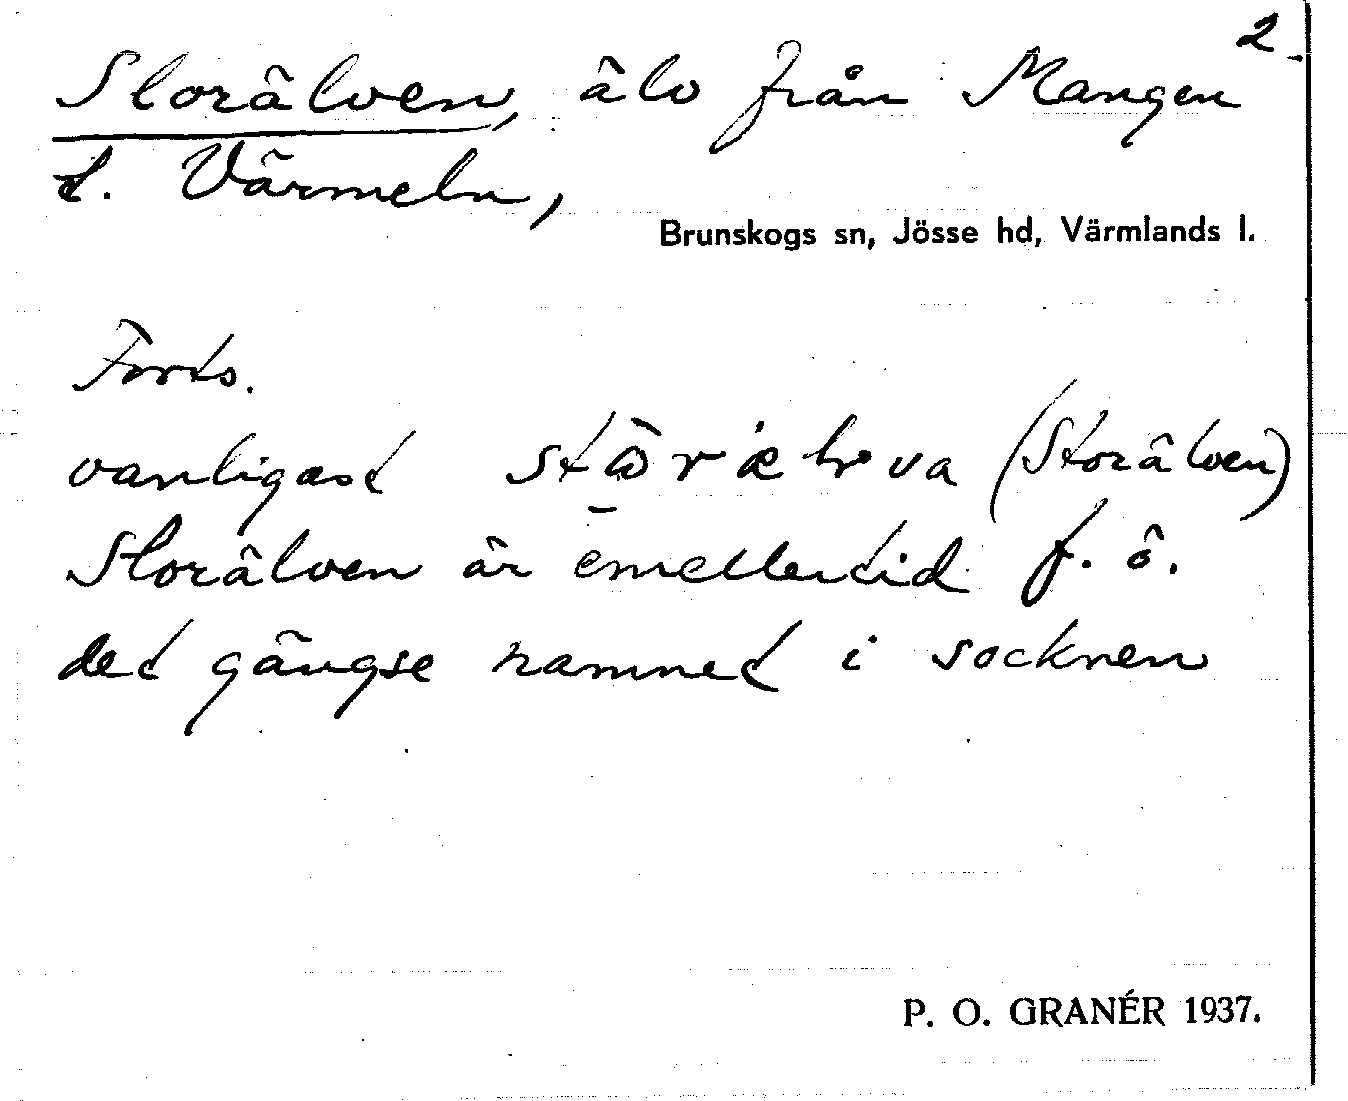 2
Storälven, älv från Mangen
t. Värmeln,
Brunskogs sn, Jösse hd, Värmlands l.
Forts.
vanligast (Storälven)
Storälven är emellertid f. ö.
det gängse namnet i socknen
P. O. GRANÉR 1937.